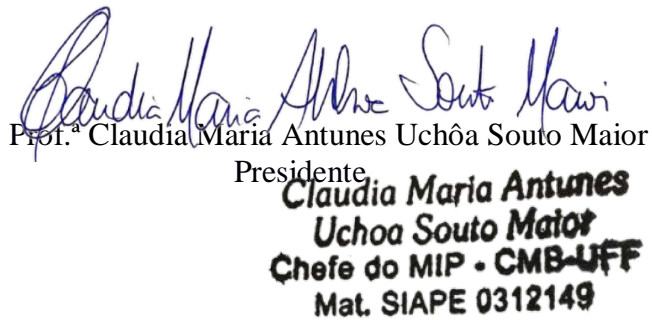 Claudia Maria Antunes Souto Maior
Prof.ª Claudia Maria Antunes Uchôa Souto Maior
Presidente
Claudia Maria Antunes
Uchoa Souto Maior
Chefe do MIP - CMB-UFF
Mat. SIAPE 0312149